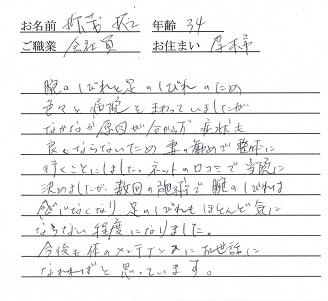 お名前 年齢 34
ご職業 会社員 お住まい 厚木市
腕のしびれと足のしびれのため
色々と病院をまわっていましたが
なかなか原因が分からず 症状も
良くならないため 妻の勧めで整体に
行くことにしました。ネットの口コミで当院に
決めましたが、数回の施術で腕のしびれは
感じなくなり 足のしびれもほとんど気に
ならない程度になりました。
今後も体のメンテナンスにお世話に
なれればと思っています。